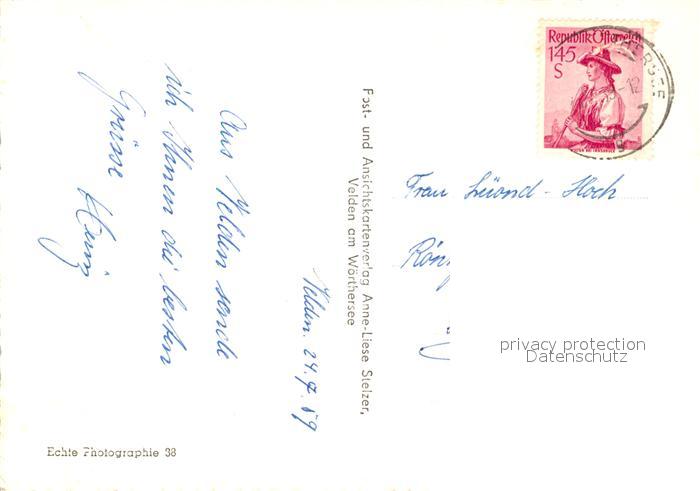 Aus Velden sende
ich Ihnen die besten
Grüsse
Heinz
Velden. 24.7.59
Post- und Ansichtskartenverlag Anne-Liese Stelzer,
Velden am Wörthersee
Echte Photographie 38
Republik Österreich
1·45
S
Frau Lüond - Hoch
privacy protection
Datenschutz